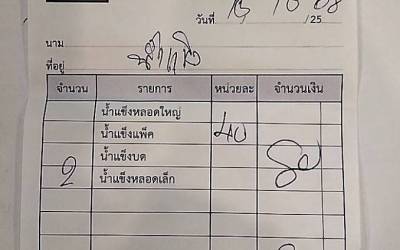 วันที่ 15 10 68 /25
นาม
ที่อยู่
จำนวน รายการ หน่วยละ จำนวนเงิน
น้ำแข็งหลอดใหญ่
น้ำแข็งแพ็ค 40
น้ำแข็งบด 80
2 น้ำแข็งหลอดเล็ก